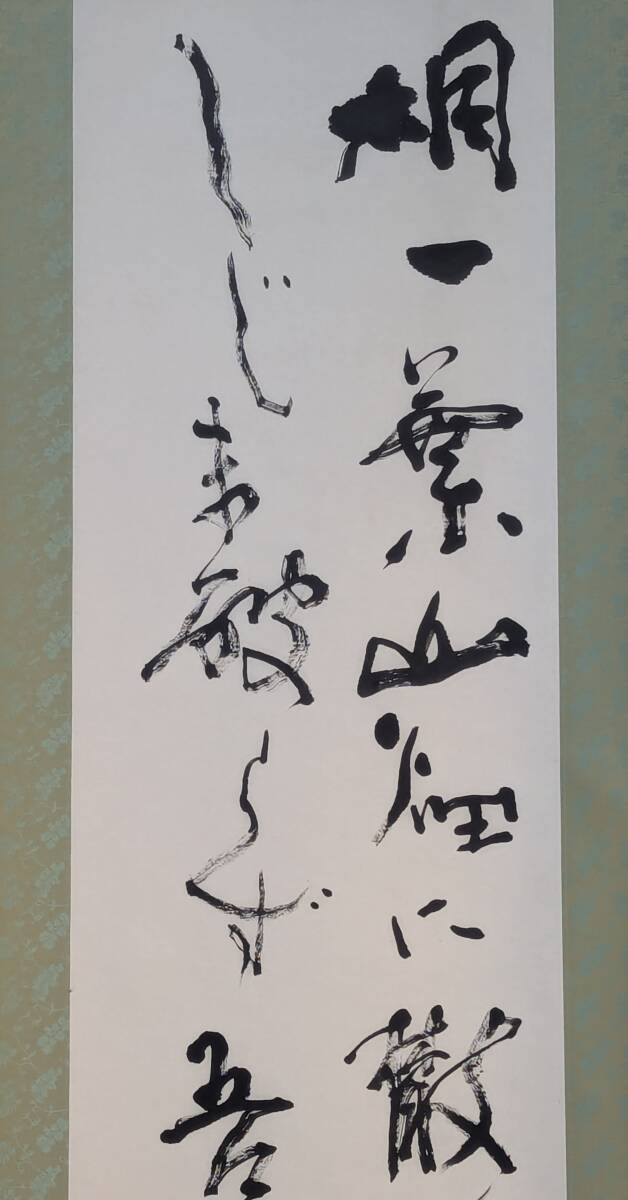 桐一葉山径に散
しじま破らず吾